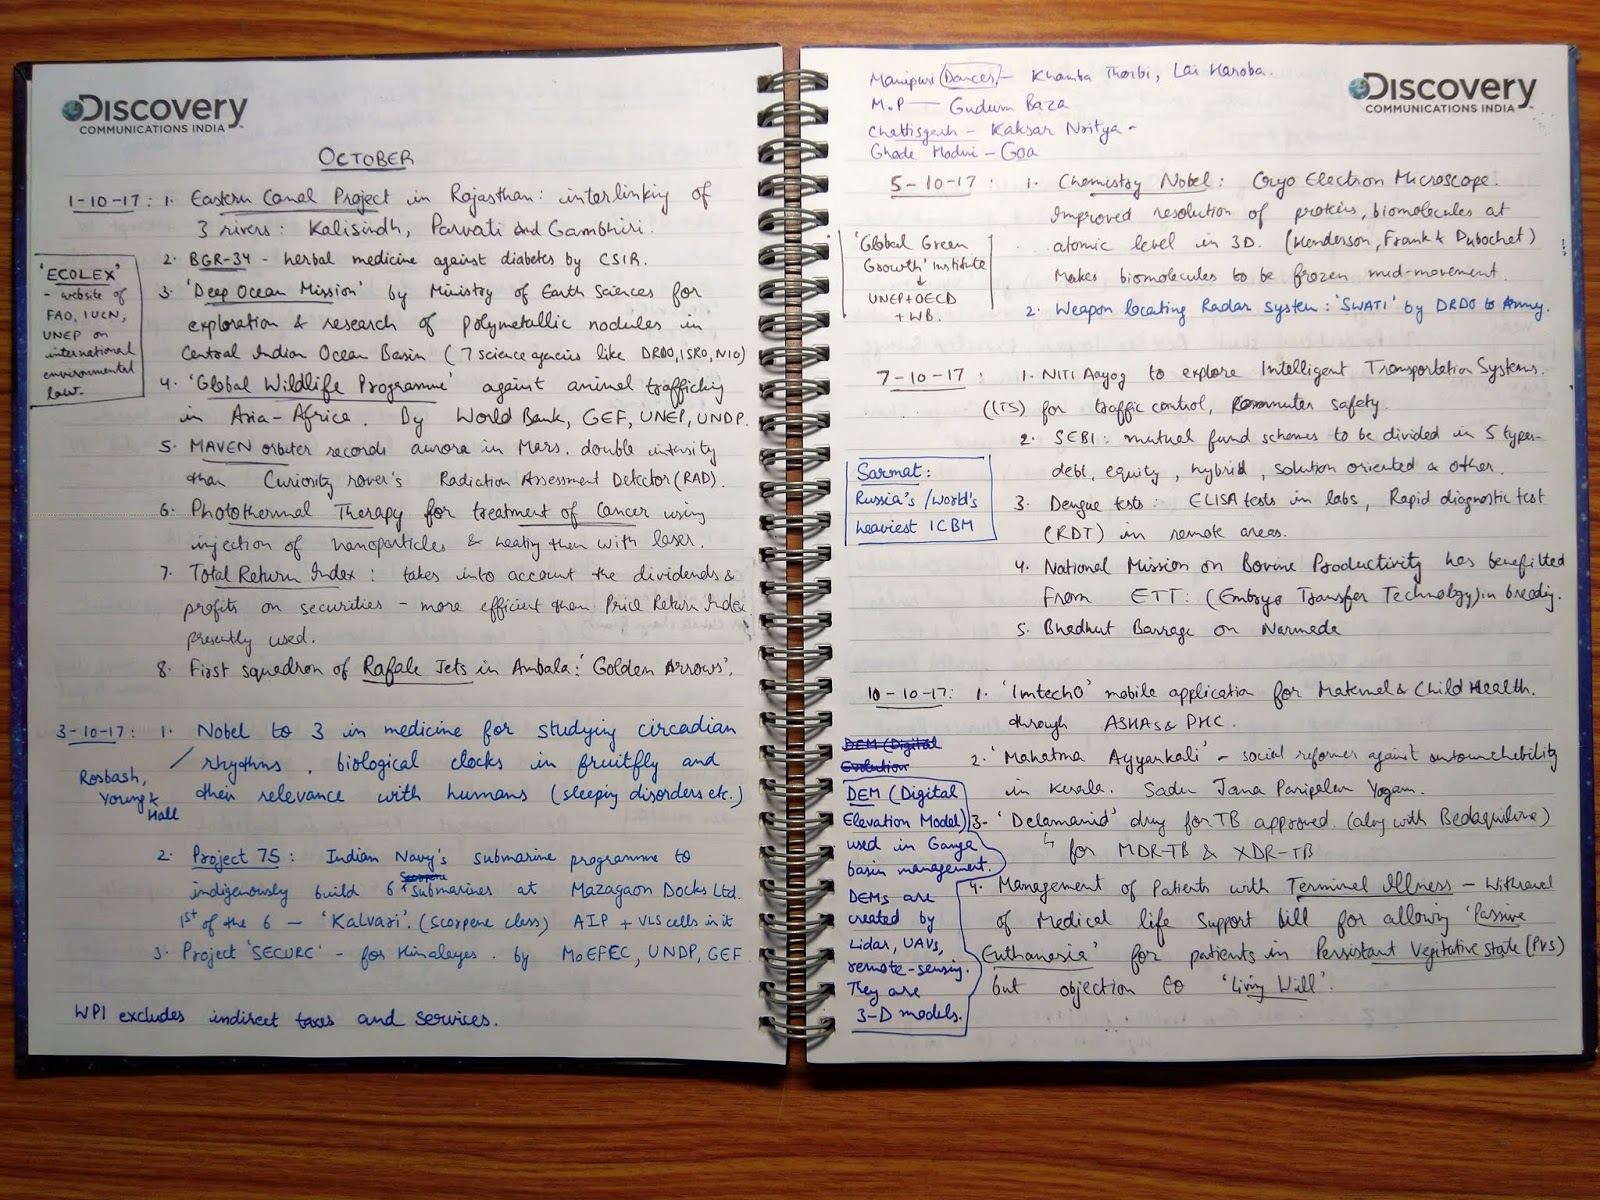 Discovery
COMMUNICATIONS INDIA
OCTOBER
1-10-17: 1. Eastern Canal Project in Rajasthan: interlinking of
3 rivers: Kalisindh, Parvati and Gambhiri.
2. BGR-34 - herbal medicine against diabetes by CSIR.
3. 'Deep Ocean Mission' by Ministry of Earth Sciences for
exploration & research of polymetallic nodules in
Central Indian Ocean Basin (7 science agencies like DRDO, ISRO, NIO)
4. 'Global Wildlife Programme' against animal trafficking
in Asia-Africa. By World Bank, GEF, UNEP, UNDP.
5. MAVEN orbiter records aurora in Mars. double intensity
than Curiosity rover's Radiation Assessment Detector (RAD).
6. Photothermal Therapy for treatment of Cancer using
injection of nanoparticles & heating them with laser.
7. Total Return Index: takes into account the dividends &
profits on securities - more efficient than Price Return Index
presently used.
8. First squadron of Rafale Jets in Ambala: 'Golden Arrows'.
'ECOLEX'
- website of
FAO, IUCN,
UNEP on
international
environmental
law.
3-10-17: 1. Nobel to 3 in medicine for studying circadian
rhythms. biological clocks in fruitfly and
their relevance with humans (sleeping disorders etc.)
Rosbash,
Young &
Hall
2. Project 75: Indian Navy's submarine programme to
indigenously build 6 submarines at Mazagaon Docks Ltd.
1st of the 6 - 'Kalvari'. (Scorpene class) AIP + VLS cells in it
3. Project 'SECURE' - for Himalayas. by MoEFEC, UNDP, GEF
WPI excludes indirect taxes and services.
Manipuri Dances - Khamba Thoibi, Lai Haroba.
M.P - Gudum Baza
Chattisgarh - Kaksar Nritya -
Ghode Modni - Goa
Discovery
COMMUNICATIONS INDIA
5-10-17: 1. Chemistry Nobel: Cryo Electron Microscope.
Improved resolution of proteins, biomolecules at
atomic level in 3D. (Henderson, Frank & Dubochet)
Makes biomolecules to be frozen mid-movement.
2. Weapon locating Radar System: 'SWATI' by DRDO to Army.
'Global Green
Growth' Institute
↓
UNEP+OECD
+ WB.
7-10-17: 1. NITI Aayog to explore Intelligent Transportation Systems.
(ITS) for traffic control, commuter safety.
2. SEBI: mutual fund schemes to be divided in 5 types-
debt, equity, hybrid, solution oriented & other.
3. Dengue tests: ELISA tests in labs, Rapid diagnostic test
(RDT) in remote areas.
4. National Mission on Bovine Productivity has benefitted
from ETT: (Embryo Transfer Technology) in breeding.
5. Bhadhut Barrage on Narmada
Sarmat:
Russia's/world's
heaviest ICBM
10-10-17: 1. 'ImtechO' mobile application for Maternal & Child Health.
through ASHAs & PHC.
2. 'Mahatma Ayyankali' - social reformer against untouchability
in Kerala. Sadu Jana Paripalan Yogam.
3- 'Delamanid' drug for TB approved. (along with Bedaquiline)
↳ for MDR-TB & XDR-TB
4. Management of Patients with Terminal Illness - Withrawal
of Medical life Support bill for allowing 'Passive
Euthanasia' for patients in Persistant Vegitative state (PVS)
but objection to 'Living Will'.
DEM (Digital
Evolution
DEM (Digital
Elevation Model)
used in Ganga
basin management.
DEMs are
created by
Lidar, UAVs,
remote-sensing.
They are
3-D models.